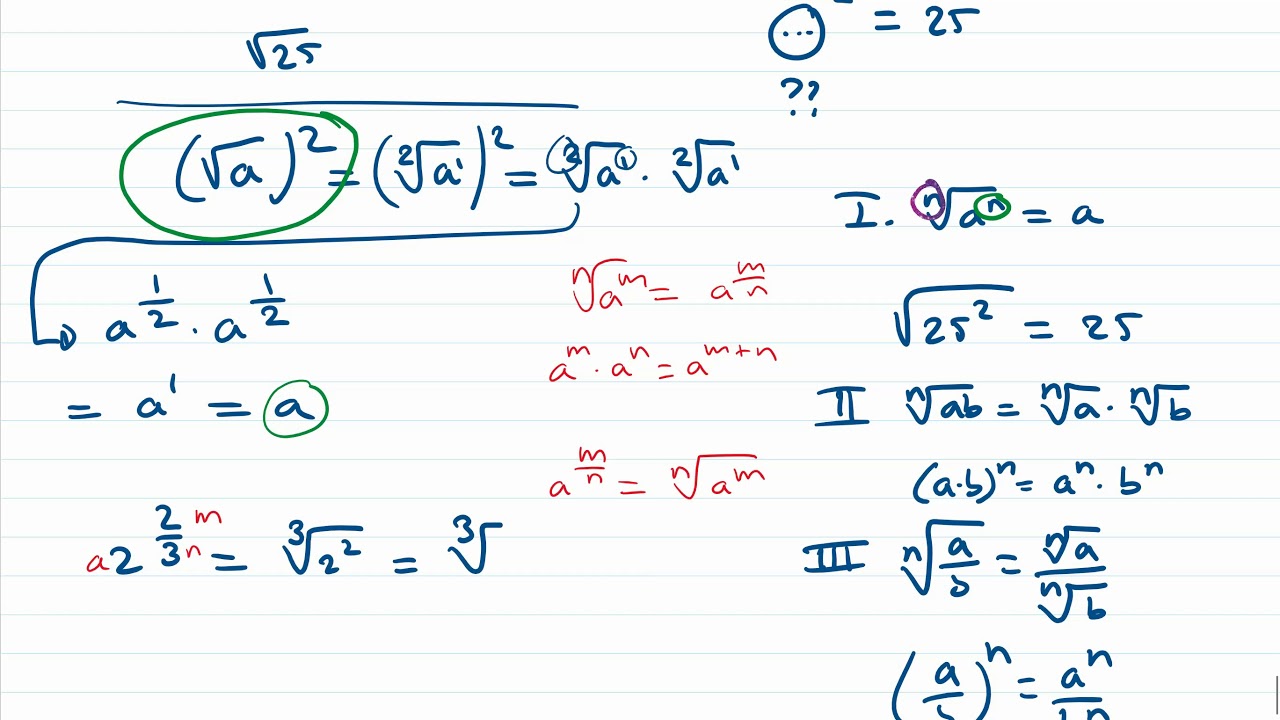 √25
(...)² = 25
??
(√a)² = (²√a¹)² = ²√a¹ · ²√a¹
a^(1/2) · a^(1/2)
= a¹ = a
ⁿ√a^m = a^(m/n)
a^m · a^n = a^(m+n)
a^(m/n) = ⁿ√a^m
a 2^(2/3) m n = ³√2² = ³√
I. ⁿ√aⁿ = a
√25² = 25
II ⁿ√ab = ⁿ√a · ⁿ√b
(a·b)ⁿ = aⁿ · bⁿ
III ⁿ√(a/b) = ⁿ√a / ⁿ√b
(a/b)ⁿ = aⁿ / bⁿ